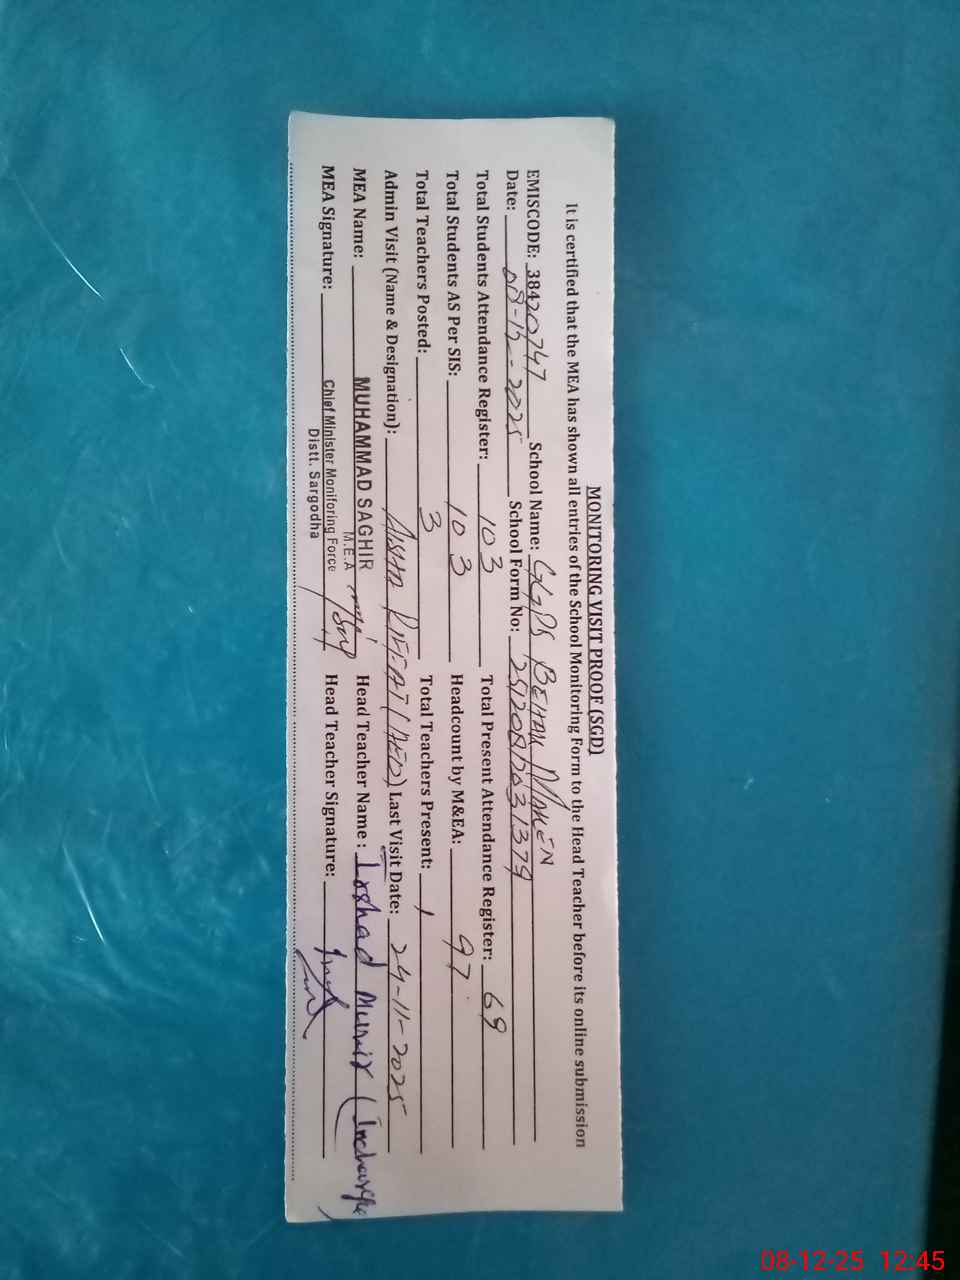 MONITORING VISIT PROOF (SGD)
It is certified that the MEA has shown all entries of the School Monitoring Form to the Head Teacher before its online submission
EMISCODE: 38420747 School Name: GGPS BEHAK MAKEN
Date: 08-12-2025 School Form No:
Total Students Attendance Register: 103 Total Present Attendance Register: 69
Total Students AS Per SIS: 103 Headcount by M&EA: 97
Total Teachers Posted: 3 Total Teachers Present: 1
Admin Visit (Name & Designation): AISHA RIFFAT (AEO) Last Visit Date: 24-11-2025
MEA Name: MUHAMMAD SAGHIR Head Teacher Name: Irshad Munir (Incharge)
M.E.A
MEA Signature: Chief Minister Moniforing Force Head Teacher Signature:
Distt. Sargodha
08-12-25 12:45